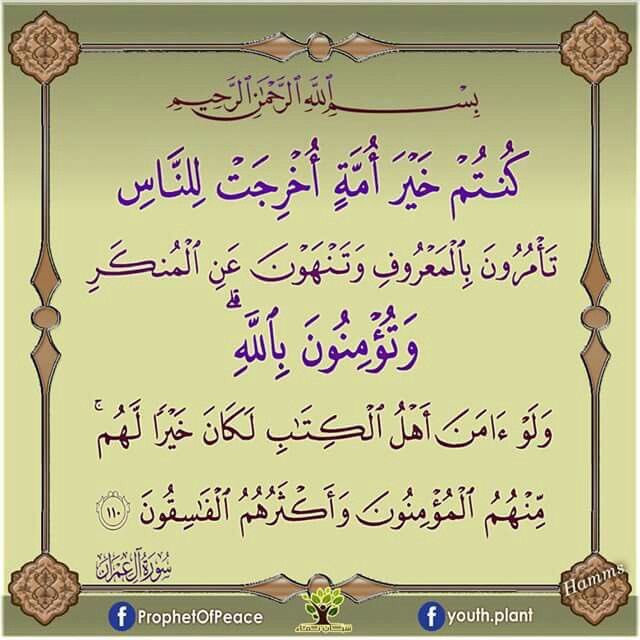 بِسْمِ ٱللَّهِ ٱلرَّحْمَٰنِ ٱلرَّحِيمِ
كُنتُمْ خَيْرَ أُمَّةٍ أُخْرِجَتْ لِلنَّاسِ
تَأْمُرُونَ بِٱلْمَعْرُوفِ وَتَنْهَوْنَ عَنِ ٱلْمُنكَرِ
وَتُؤْمِنُونَ بِٱللَّهِ ۗ
وَلَوْ ءَامَنَ أَهْلُ ٱلْكِتَٰبِ لَكَانَ خَيْرًا لَّهُم ۚ
مِّنْهُمُ ٱلْمُؤْمِنُونَ وَأَكْثَرُهُمُ ٱلْفَٰسِقُونَ ١١٠
سُورَةُ آلِ عِمْرَانَ
Hamms
ProphetOfPeace
youth.plant